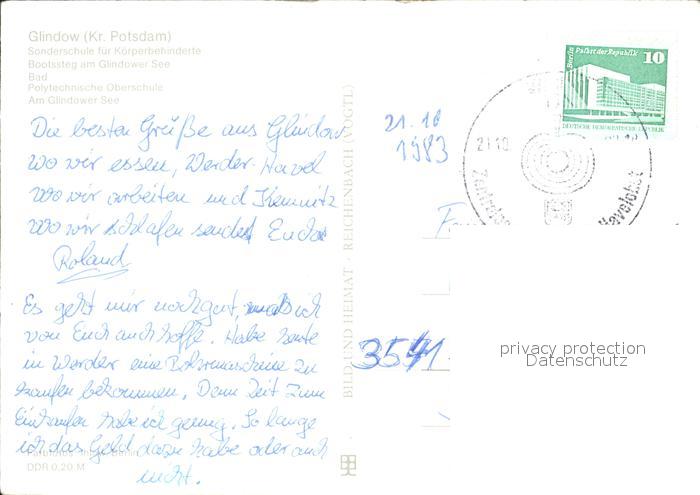 Glindow (Kr. Potsdam)
Sonderschule für Körperbehinderte
Bootssteg am Glindower See
Bad
Polytechnische Oberschule
Am Glindower See
Die besten Grüße aus Glindow
wo wir essen, Werder-Havel
wo wir arbeiten und Kemnitz
wo wir schlafen sendet Euch
Roland
Es geht mir noch gut, was ich
von Euch auch hoffe. Habe heute
in Werder eine Bohrmaschine zu
kaufen bekommen. Denn Zeit zum
Einkaufen habe ich genug. So lange
ich das Geld dazu habe oder auch
nicht.
Berlin
DDR 0,20 M
BILD UND HEIMAT · REICHENBACH (VOGTL)
21.10
1983
3541
Berlin Palast der Republik
10
DEUTSCHE DEMOKRATISCHE REPUBLIK
21.10
Havelobst
privacy protection
Datenschutz